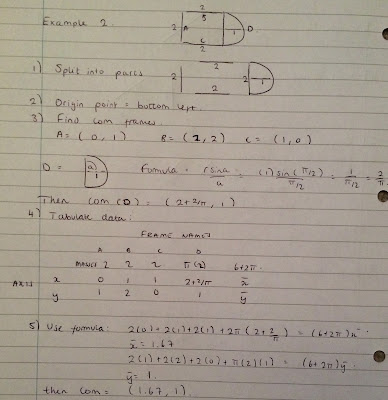 Example 2.
2
B
2 A 1 D
C
2
1) Split into parts 2 2 2 2 1
2) Origin point = bottom left.
3) Find com frames
A = (0, 1) B = (1, 2) C = (1, 0)
D = a) 1 Formula = rsina/a = (1) sin(π/2)/π/2 = 1/π/2 = 2/π
Then com (D) = (2+2/π, 1)
4) Tabulate data:
FRAME NAMES
A B C D
MASSES 2 2 2 π(2) 6+2π
AXIS x 0 1 1 2+2/π x̄
y 1 2 0 1 ȳ
5) Use formula: 2(0) + 2(1) + 2(1) + 2π(2+2/π) = (6+2π)x̄
x̄ = 1.67
2(1) + 2(2) + 2(0) + π(2)(1) = (6+2π)ȳ
ȳ = 1.
then com = (1.67, 1).